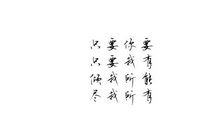 只要你要
只要我有
倾我所能
尽我所有